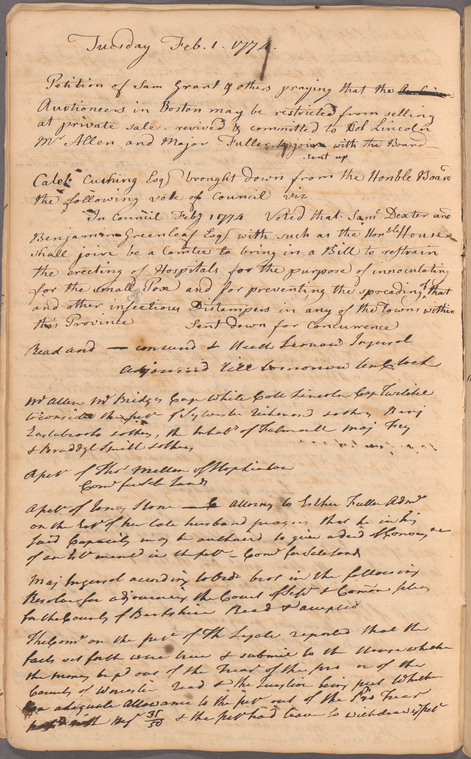 Tuesday Feb. 1. 1774.
Petition of Sam Grant & others praying that the
Auctioneers in Boston may be restricted from selling
at private sale. revived & committed to Col Lincoln
Mr Allen and Major Fuller to join with the Board
sent up
Caleb Cushing Esq brought down from the Honble Board
the following vote of Council viz
In Council Feby 1 1774 Voted that Saml Dexter and
Benjamin Greenleaf Esqs with such as the Honble House
shall joine be a Comtee to bring in a Bill to restrain
the erecting of Hospitals for the purpose of innoculating
for the Small Pox and for preventing the spreading of that
and other infectious Distempers in any of the Towns within
this Province Sent down for Concurrence
Read and concurd & Heath Leonard Ingersol
Adjourned till tomorrow ten Clock
Mr Allen Mr Bridges Cap White Coll Lincoln Cap
to consider the pet of Sylvester Richmond & others Benj
Easterbrooks & others, the Inhabs of Falmouth Maj Foey
& Braddyl Smith & others
A pet of Thos Mellen of Hopkinton
Comee for Sale Lands
A pet of Jonas Stone allowing to Esther Fuller Admx
on the Est of her late husband praying that he in his
said Capacity may be authorized to give a deed & Convey ce
of an Est mend in the pet Comee for Sale Land
Maj Ingersol according to order brot in the following
Resolve for adjourning the Court of Sess & Common pleas
for the County of Berkshire Read & accepted
The Comee on the pet of reported that the
facts set forth were true & submit to the House whether
the money be pd out of the Treay of the pro or of the
County of Worcester Read & the question being put Whether
an adequate Allowance to the pet out of the Pro Treay
Neg 35/50 & the pet had leave to withdraw pet